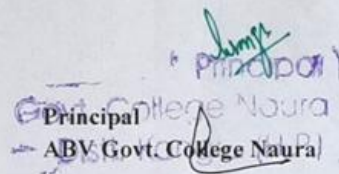 Principal
Govt. College Naura
Principal
ABV Govt. College Naura